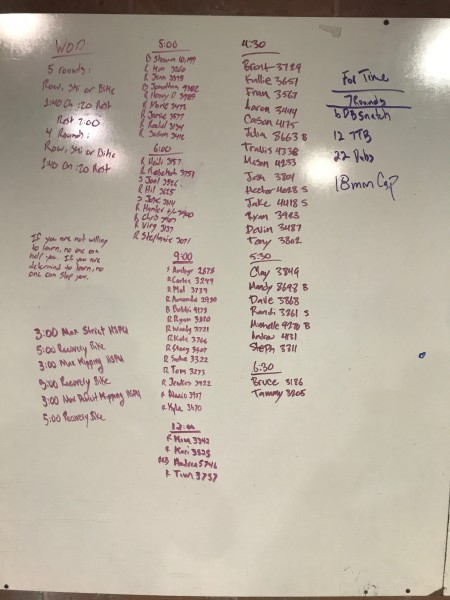 WOD
5 rounds:
Row, Ski or Bike
1:40 On :20 Rest
Rest 2:00
4 Rounds:
Row, Ski or Bike
1:40 On :20 Rest
If you are not willing
to learn, no one can
help you. If you are
determined to learn, no
one can stop you.
3:00 Max Strict HSPU
5:00 Recovery Bike
3:00 Max Kipping HSPU
5:00 Recovery Bike
3:00 Max Kipping HSPU
5:00 Recovery Bike
5:00
B Shawn
R Kim 3260
R
B Jonathan
R Henry D 3985
R Marie 3477
R Jamie 3577
R Rachel
R
6:00
R Heidi 3157
R Rebekah 3751
S Joel
R Hil 3625
S Jose
R Hunter
R Chris
R Virg
R Stefanie 3071
9:00
R 2678
R Carter 3249
R Mel 3739
R Amanda 2930
B Bobbi 9173
R Ryan 3820
R Wendy 3721
R Kate 3766
R Stacy
R Sadie 3322
R Tom 3273
R 3922
R 3917
R Kyle 3470
12:00
R Mona 3342
R Kari 3525
Andrea 5746
R Tim 3737
4:30
Brent 3729
Kallie 3657
Fran 3567
Aaron 3444
Cason 4175
Julia 8663 B
Travis 4338
Mason 4253
Josh 3804
Hector 4028 S
Jake 4418 S
Ryan 3983
Devin 3487
Tony 3802
5:30
Clay 3849
Mandy 8693 B
Dave 3868
Randi 3261 S
Michelle 9270 B
Andrew 4131
Steph 3311
6:30
Bruce 3186
Tammy 3205
For Time
7 Rounds
6 DB Snatch
12 TTB
22 Dubs
18 min Cap